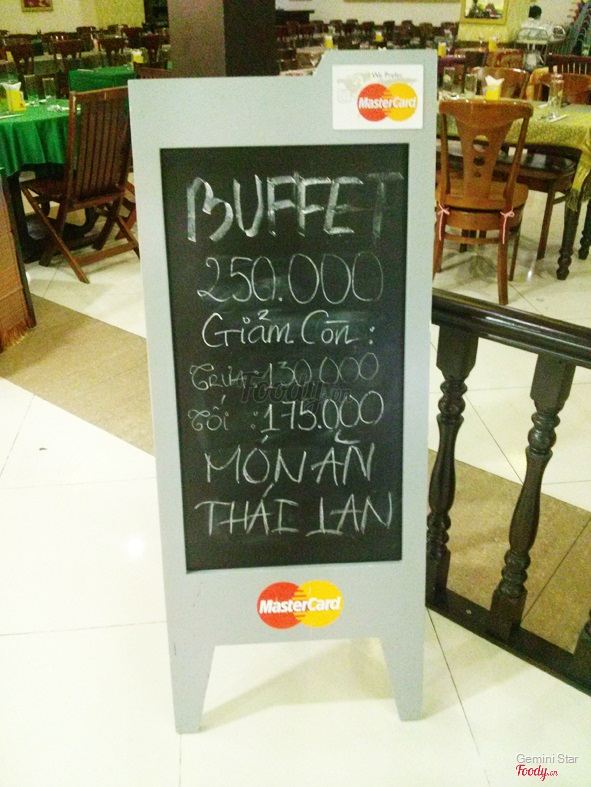 We Prefer
MasterCard
BUFFET
250.000
Giảm Còn :
Trưa : 130.000
Tối : 175.000
MÓN ĂN
THÁI LAN
MasterCard
Foody.vn
Gemini Star
Foody.vn